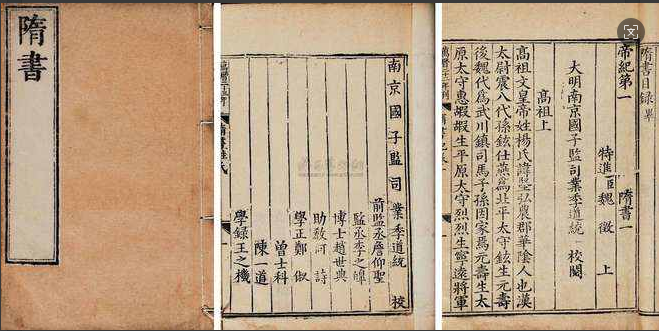 隋書
南京國子監司業季道統 校
前監丞詹仰聖
監丞李之皥
博士趙世典
助教何詩
學正鄭俶
曾士科
陳一道
學錄王之機
隋書目錄畢
帝紀第一 隋書一
特進臣魏徵上
大明南京國子監司業季道統 校閱
高祖上
高祖文皇帝姓楊氏諱堅弘農郡華陰人也漢
太尉震八代孫鉉仕燕爲北平太守鉉生元壽
後魏代爲武川鎮司馬子孫因家焉元壽生太
原太守惠嘏嘏生平原太守烈烈生寧遠將軍